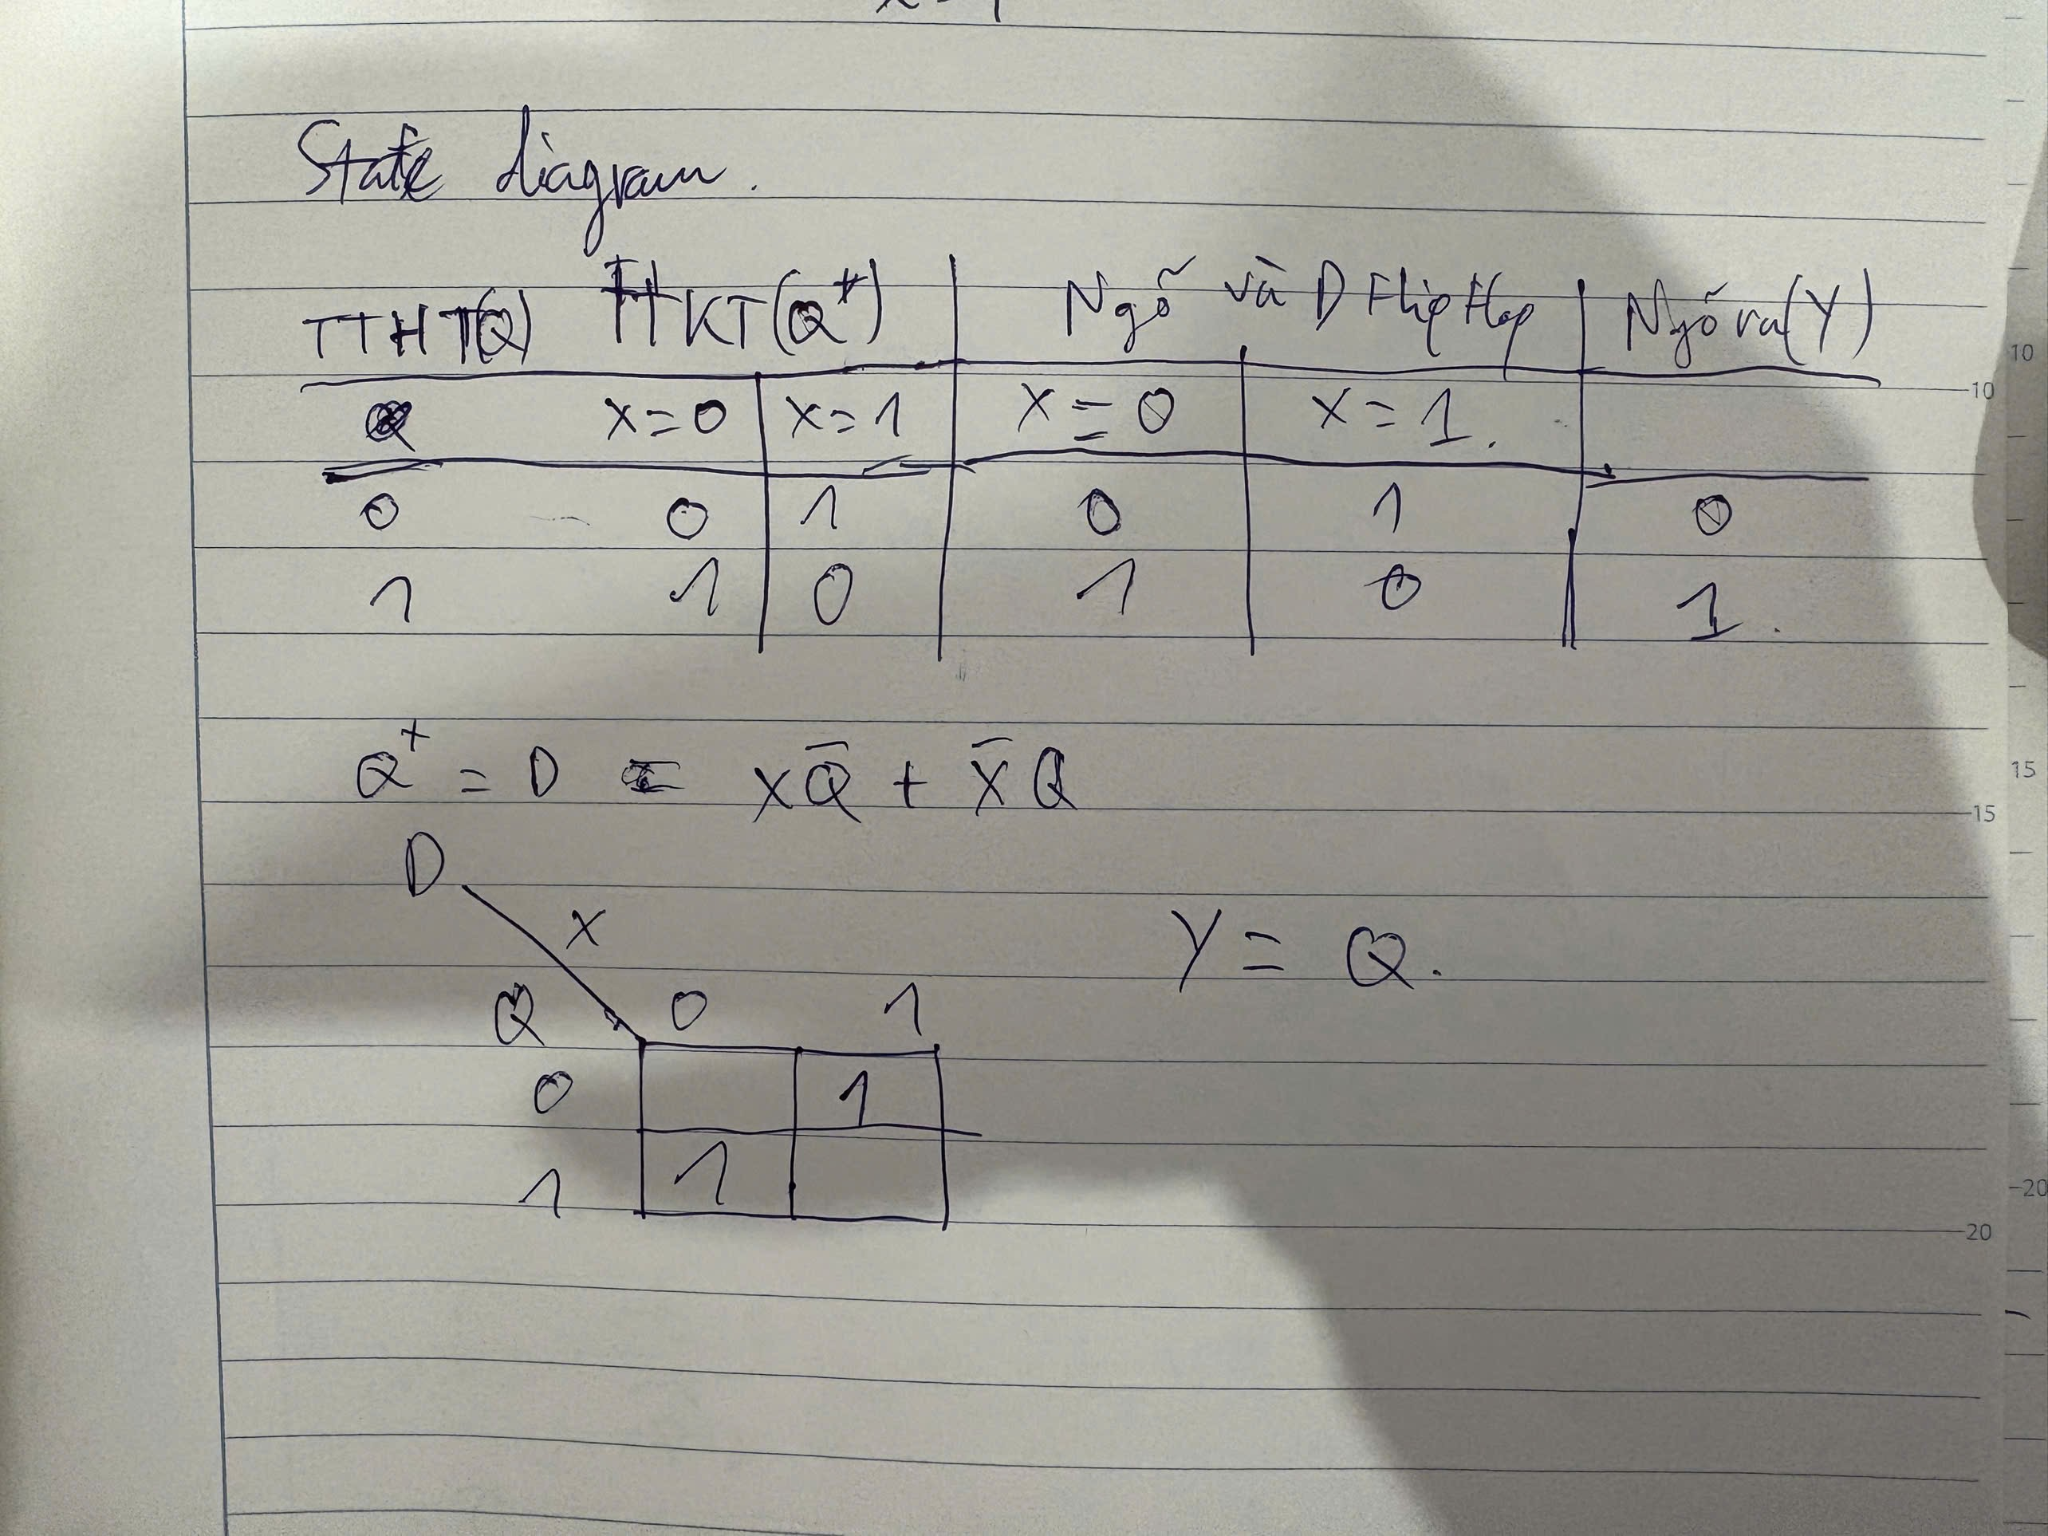 State diagram.
TTHT(Q) TTKT(Q⁺) Ngõ và D Flip Flop Ngõ ra(Y)
Q x=0 x=1 x=0 x=1.
0 0 1 0 1 0
1 1 0 1 0 1.
Q⁺ = D = xQ̅ + x̅Q
D
x
Y = Q.
Q 0 1
0 1
1 1
10
10
15
15
20
20